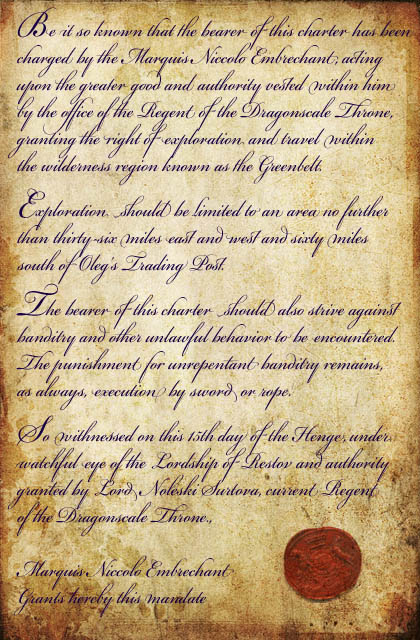 Be it so known that the bearer of this charter has been
charged by the Marquis Niccolo Embrechant, acting
upon the greater good and authority vested within him
by the office of the Regent of the Dragonscale Throne,
granting the right of exploration and travel within
the wilderness region known as the Greenbelt.
Exploration should be limited to an area no further
than thirty-six miles east and west and sixty miles
south of Oleg's Trading Post.
The bearer of this charter should also strive against
banditry and other unlawful behavior to be encountered.
The punishment for unrepentant banditry remains,
as always, execution by sword or rope.
So withnessed on this 15th day of the Henge, under
watchful eye of the Lordship of Restov and authority
granted by Lord Noleski Surtova, current Regent
of the Dragonscale Throne.,
Marquis Niccolo Embrechant
Grants hereby this mandate